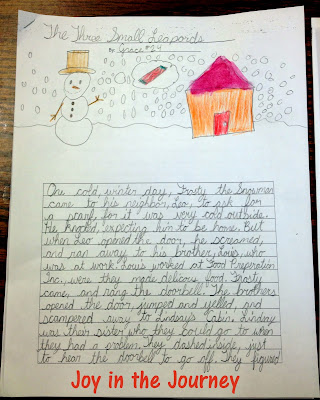 The Three Small Leapords
By Grace #24
One cold, winter day, Frosty the Snowman
came to his neighbor, Leo, to ask for
a scarf, for it was very cold outside.
He knocked, expecting him to be home. But
when Leo opened the door, he screamed,
and ran away to his brother, Louis, who
was at work. Louis worked at Food Preperation
Inc., were they made delicous food. Frosty
came, and rang the doorbell. The brothers
opened the door, jumped and yelled, and
scampered away to Lindsay's Cabin. Lindsay
was their sister who they could go to when
they had a problem. They dashed inside, just
to hear the doorbell to go off. They figured
Joy in the Journey